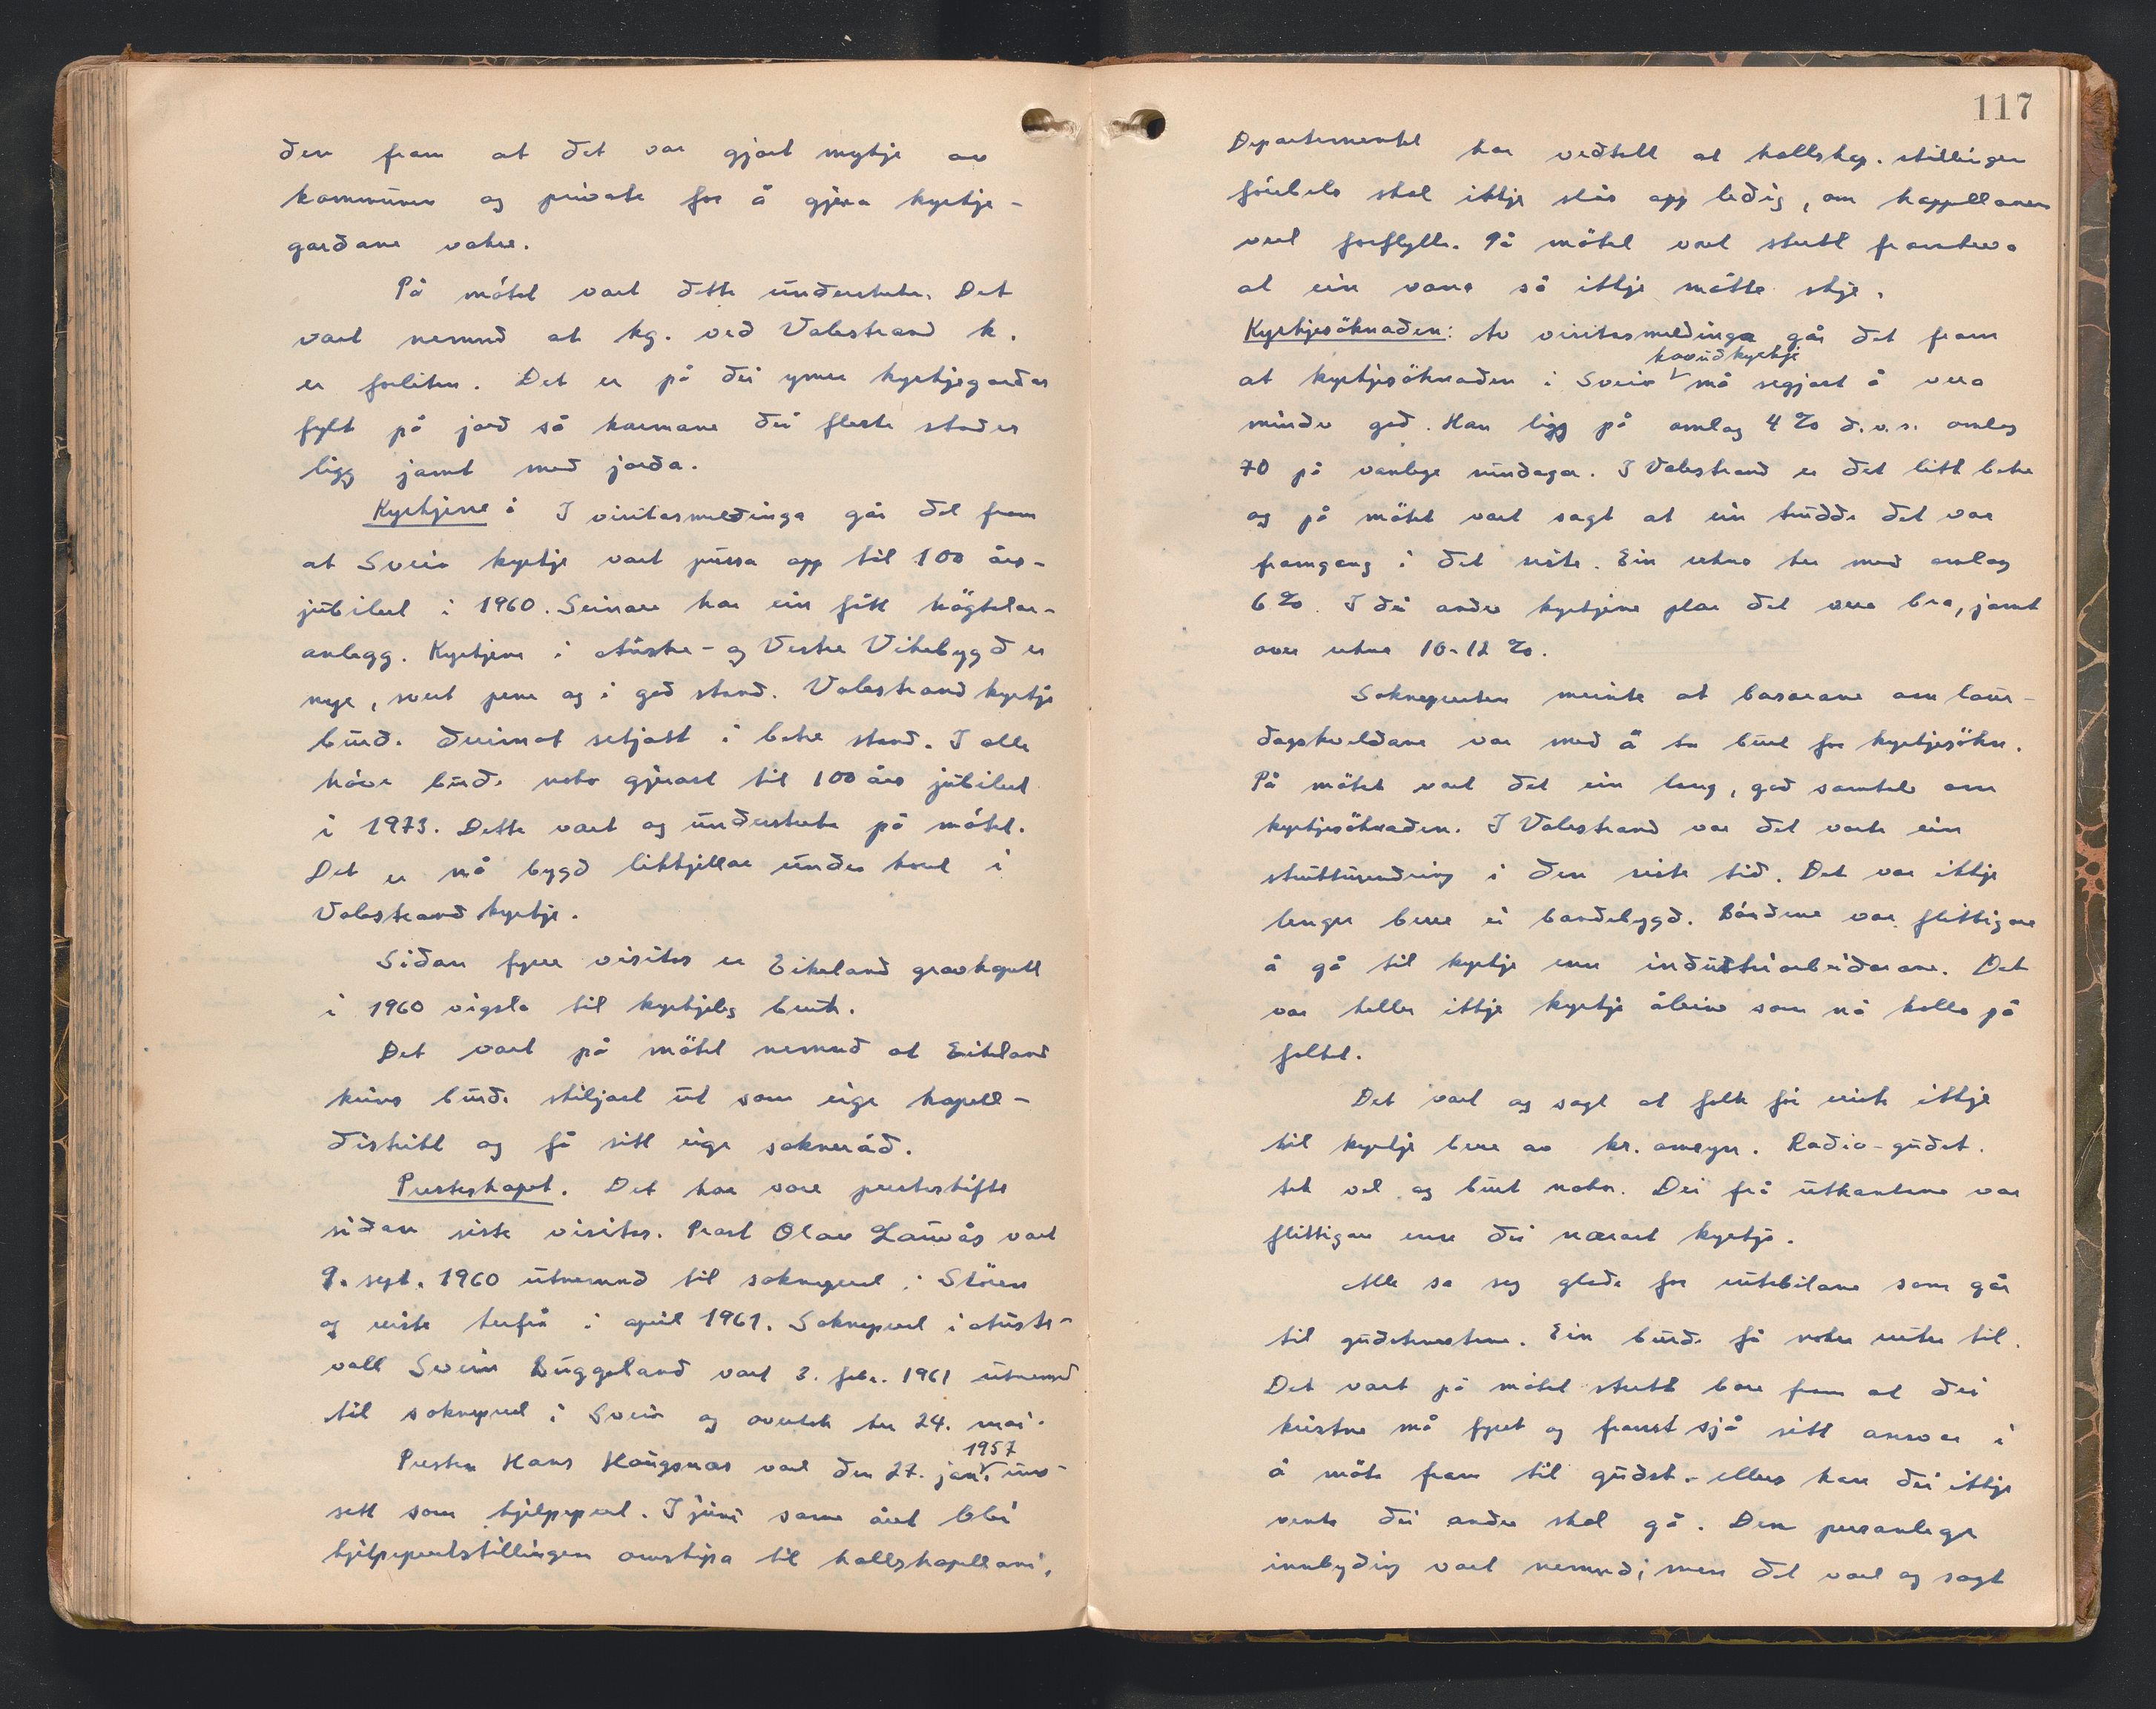 den fram at det var gjort mykje av
kommunen og private for å gjera kyrkje-
gardane vakre.
På mötet vart dette understreka. Det
vart nemnd at kg. ved Valestrand k.
er forliten. Det er på dei ymse kyrkjegardar
fylt på jord så karmane dei fleste stader
ligg jamt med jorda.
Kyrkjene: I visitasmeldinga går det fram
at Sveio kyrkje vart pussa opp til 100 års-
jubileet i 1960. Seinare har ein fått högtalar-
anlegg. Kyrkjene i Austre- og Vestre Vikebygd er
nye, svert pene og i god stand. Valestrand kyrkje
burde derimot setjast i betre stand. I alle
höve burde noko gjerast til 100 års jubileet
i 1973. Dette vart og understreka på mötet.
Det er nå bygd likkjellar under koret i
Valestrand kyrkje.
Sidan fyrre visitas er Eikeland gravkapell
i 1960 vigsla til kyrkjeleg bruk.
Det vart på mötet nemnd at Eikeland
krins burde skiljast ut som eige kapell-
distrikt og få sitt eige sokneråd.
Presteskapet. Det har vore presteskifte
sidan siste visitas. Prost Olav Lauvås vart
9. sept. 1960 utnemnd til sokneprest i Stören
og reiste herfrå i april 1961. Sokneprest i Aust-
voll Svein Buggeland vart 3. febr. 1961 utnemnd
til sokneprest i Sveio og overtok her 24. mai.
Presten Hans Haugsnæs vart den 27. jan. 1957 inn-
sett som hjelpeprest. I juni same året blei
hjelpeprestsstillingen omskipa til kallskapellani.
117
Departementet har vedtatt at kallskap. stillingen
förebels skal ikkje slås opp ledig, om kappellanen
vert forflytta. På mötet vart sterkt framheva
at ein vona så ikkje måtte skje.
Kyrkjesöknaden: Av visitasmeldinga går det fram
at kyrkjesöknaden i Sveio hovudkyrkje må segjast å vera
mindre god. Han ligg på omlag 4% d.v.s. omlag
70 på vanlege sundagar. I Valestrand er det litt betre
og på mötet vart sagt at ein trudde det var
framgang i det siste. Ein rekna her med omlag
6%. I dei andre kyrkjene plar det vera bra, jamt
over rekna 10-12%.
Soknepresten meinte at basarane om laur-
dagskveldane var med å ta bort for kyrkjesökn.
På mötet vart det ein lang, god samtale om
kyrkjesöknaden. I Valestrand var det vorte ein
strukturendring i den siste tid. Det var ikkje
lenger berre ei bondebygd. Böndene var flittigare
å gå til kyrkje enn industriarbeidarane. Det
var heller ikkje kyrkja åleine som nå kalla på
folket.
Det vart og sagt at folk för reiste ikkje
til kyrkje berre av kr. omsyn. Radio-gudst.
tek vel og burt noko. Dei frå utkantene var
flittigare enn dei nærast kyrkja.
Alle sa seg glade for rutebilane som går
til gudstenestene. Ein burde få nokre ruter til.
Det vart på mötet sterkt bore fram at dei
kristne må fyrst og fremst sjå sitt ansvar i
å möte fram til gudst. - ellers kan dei ikkje
vente dei andre skal gå. Den personlege
innbyding vart nemnd; men det vart og sagt